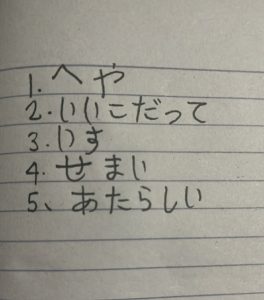 1. へや
2. いいこだって
3. いす
4. せまい
5、あたらしい